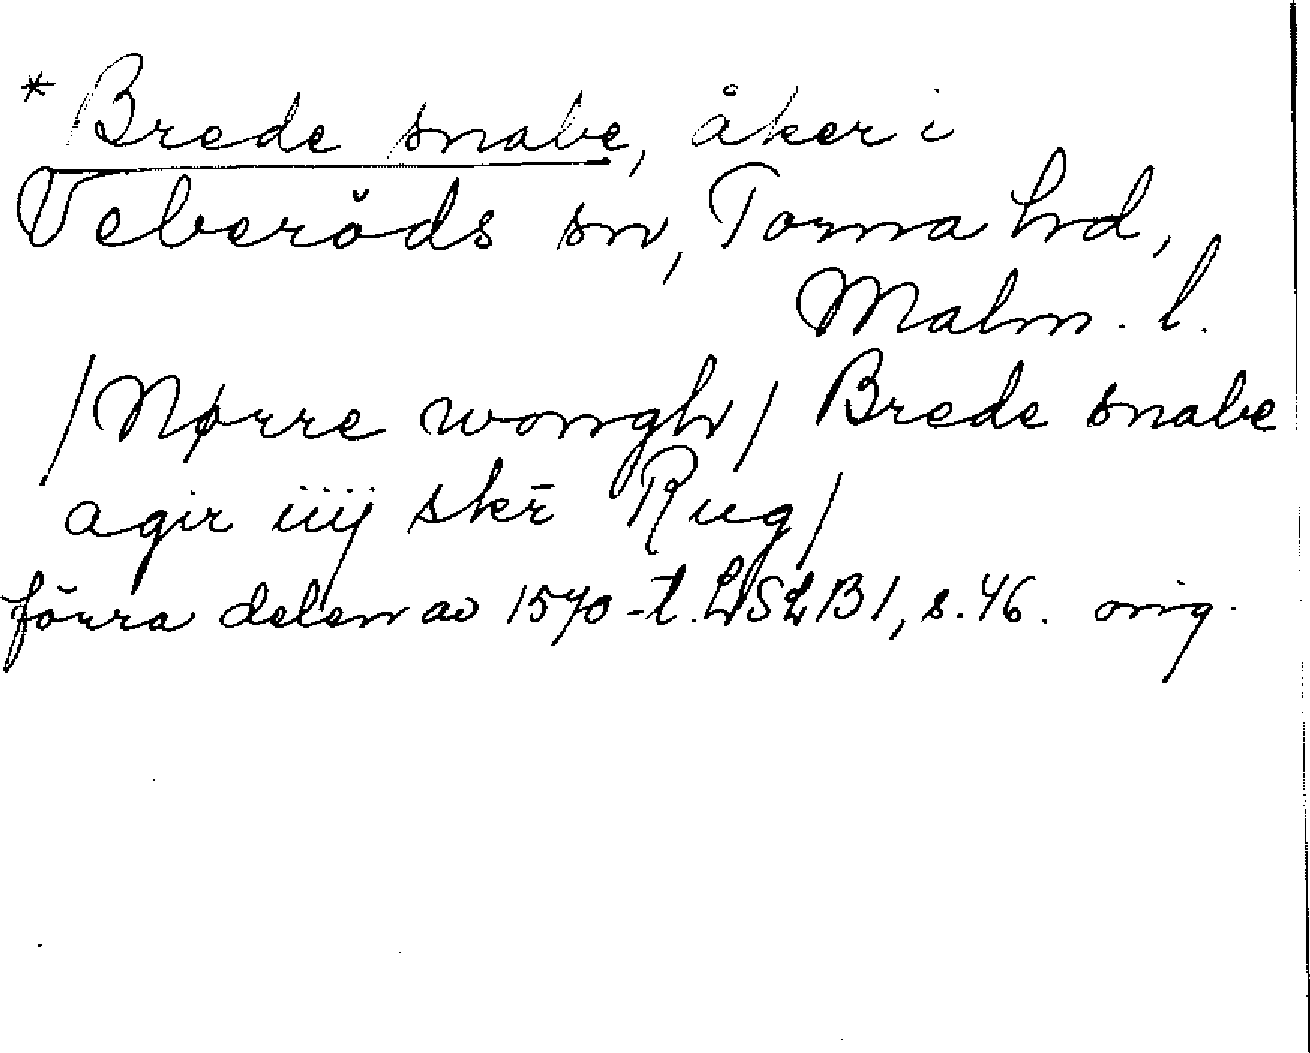 * Brede snabe, åker i
Veberöds sn, Torna hd,
Malm. l.
/Nørre wongh/ Brede snabe
agir iiij skē Rug/
förra delen av 1570-t. LSLB1, s. 46. orig.